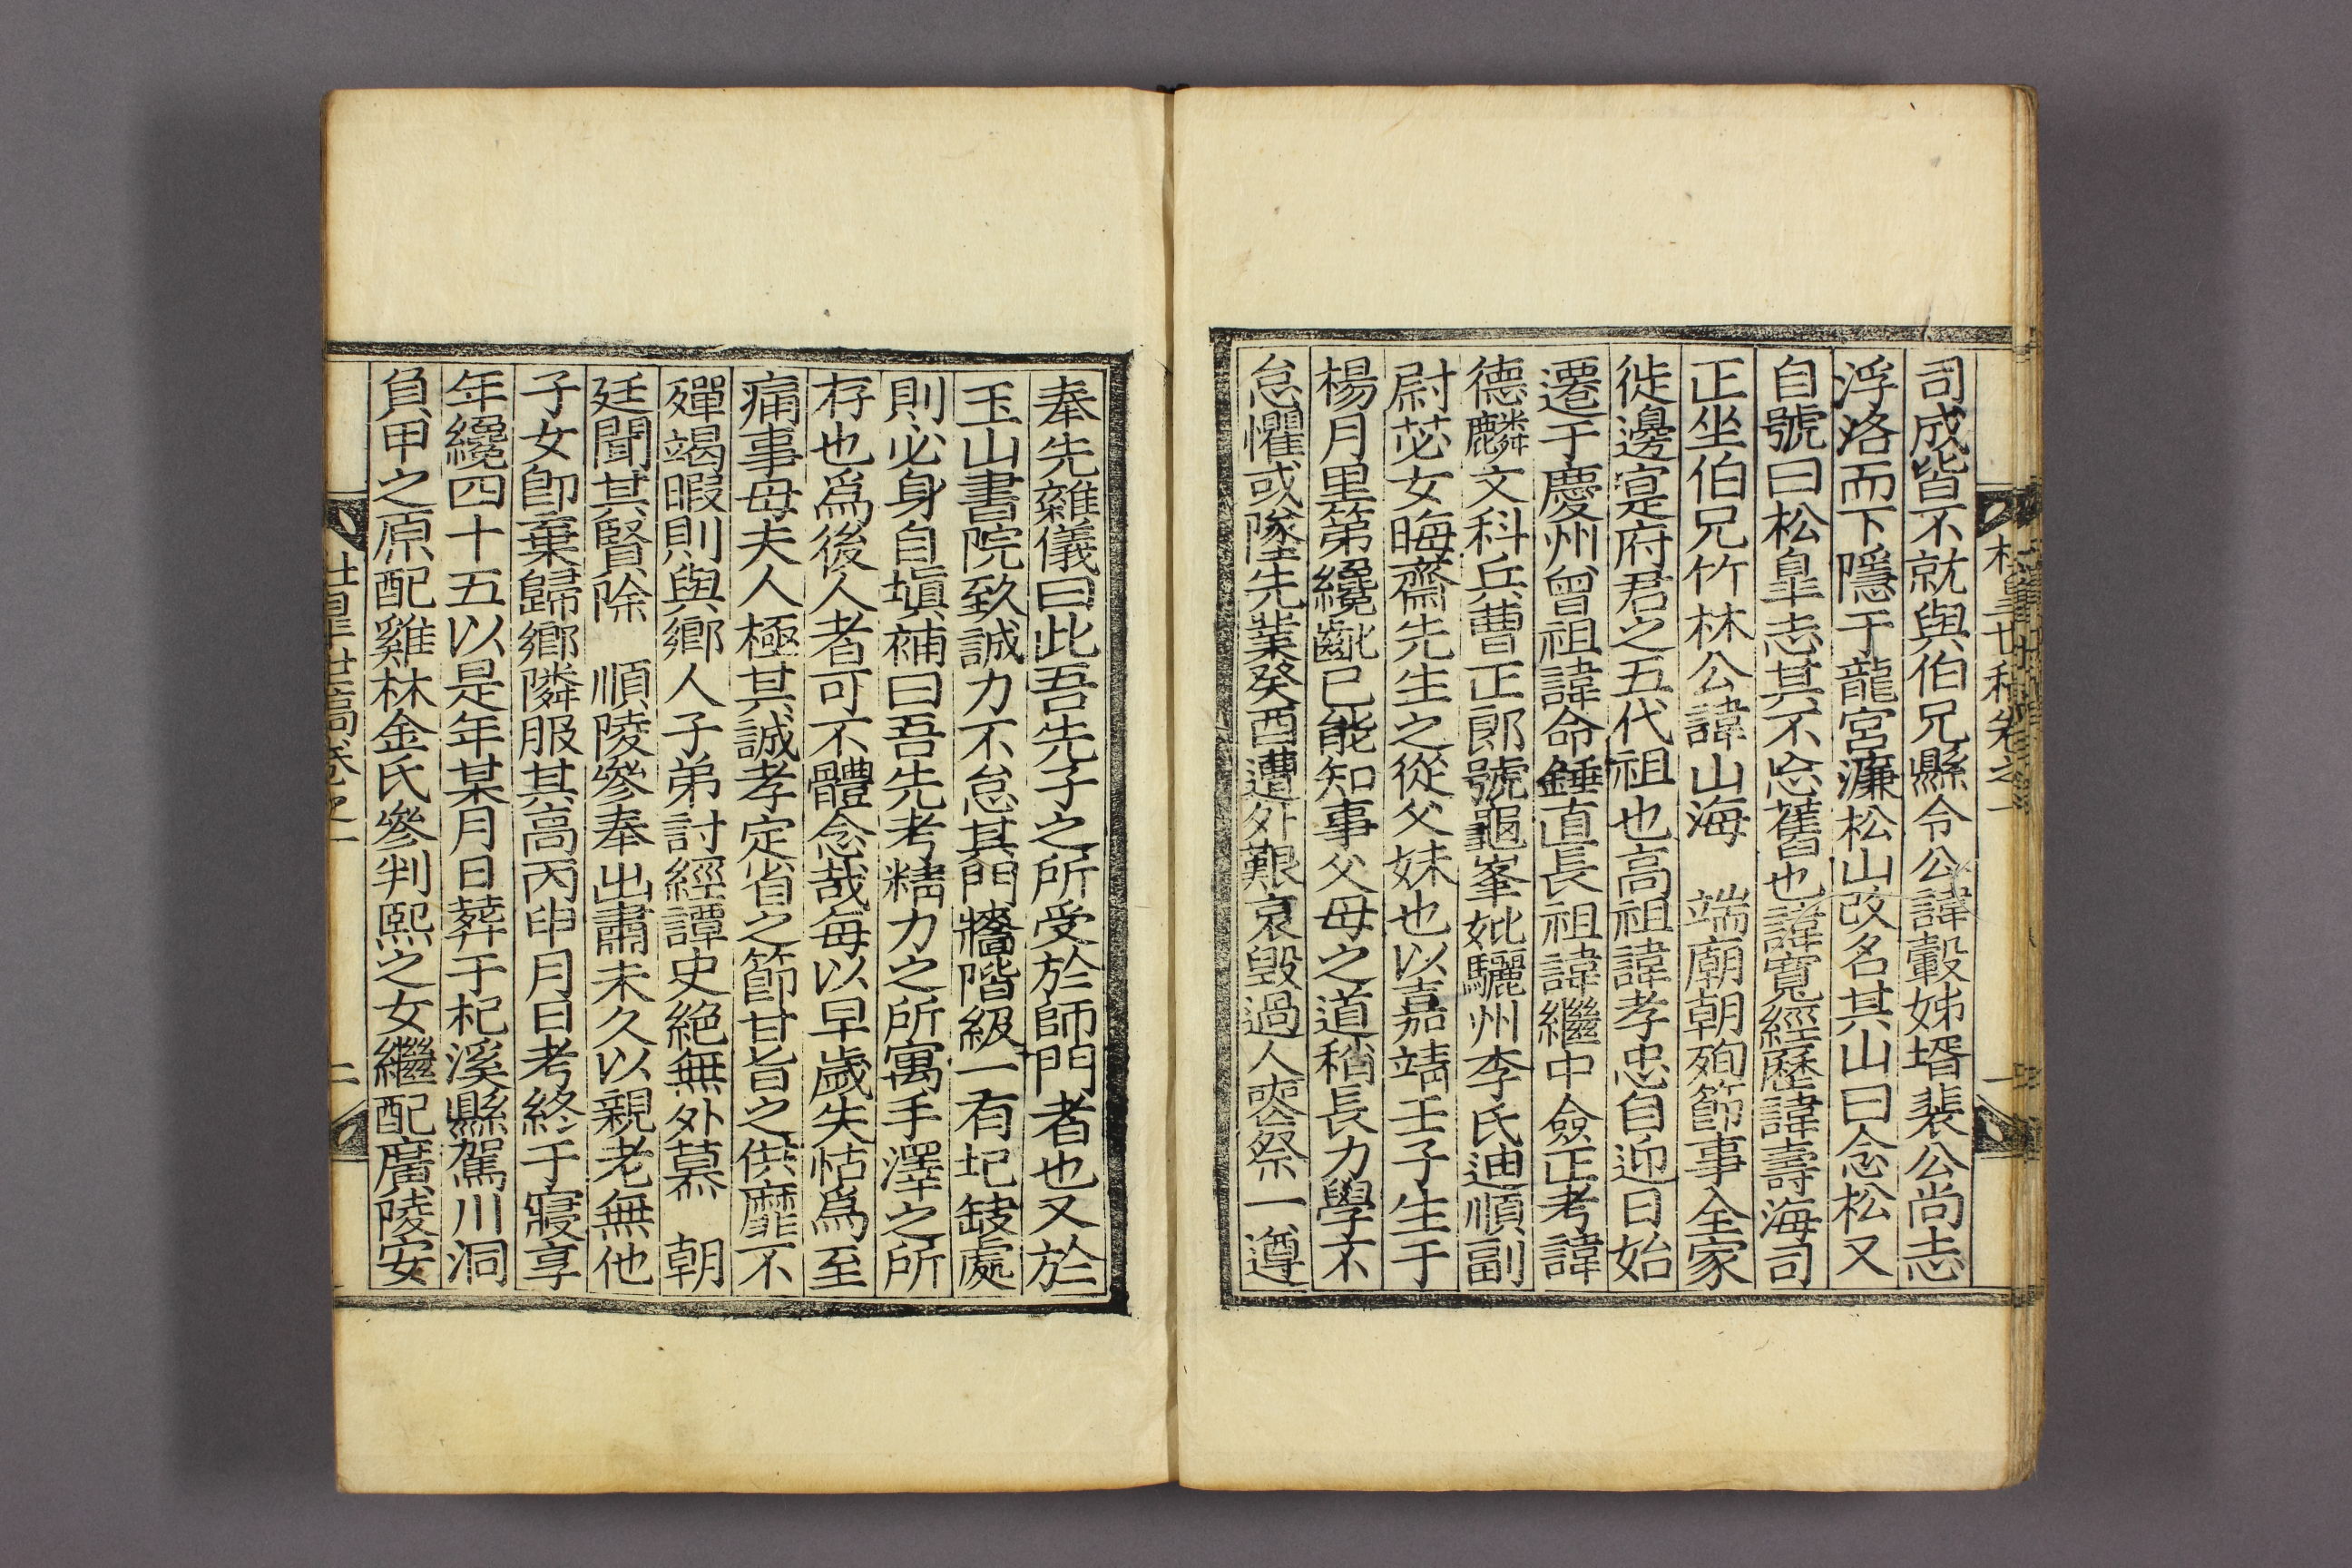 司成皆不就與伯兄縣令公諱轂姊壻裴公尚志
浮洛而下隱于龍宮濂松山改名其山曰念松又
自號曰松皐志其不忘舊也諱寬經歷諱壽海司
正坐伯兄竹林公諱山海 端廟朝殉節事全家
徙邊寔府君之五代祖也高祖諱孝忠自迎日始
遷于慶州曾祖諱命錘直長祖諱繼中僉正考諱
德麟文科兵曹正郎號龜峯妣驪州李氏迪順副
尉苾女晦齋先生之從父妹也以嘉靖壬子生于
楊月里第纔齔已能知事父母之道稍長力學不
怠懼或墜先業癸酉遭外艱哀毁過人喪祭一遵
奉先雜儀曰此吾先子之所受於師門者也又於
玉山書院致誠力不怠其門牆階級一有圮缺處
則必身自塡補曰吾先考精力之所寓手澤之所
存也爲後人者可不體念哉每以早歲失怙爲至
痛事母夫人極其誠孝定省之節甘旨之供靡不
殫竭暇則與鄉人子弟討經譚史絶無外慕 朝
廷聞其賢除 順陵參奉出肅未久以親老無他
子女卽棄歸鄉隣服其高丙申月日考終于寢享
年纔四十五以是年某月日葬于杞溪縣駕川洞
負甲之原配雞林金氏參判熙之女繼配廣陵安